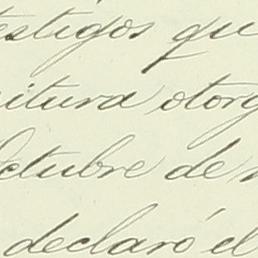 testigos que
critura otorg
Octubre de
declaró el